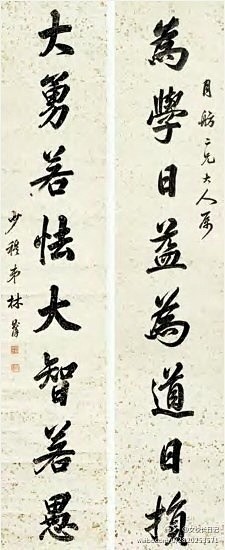 月舫二兄大人屬
為學日益為道日損
大勇若怯大智若愚
少穆弟林則徐